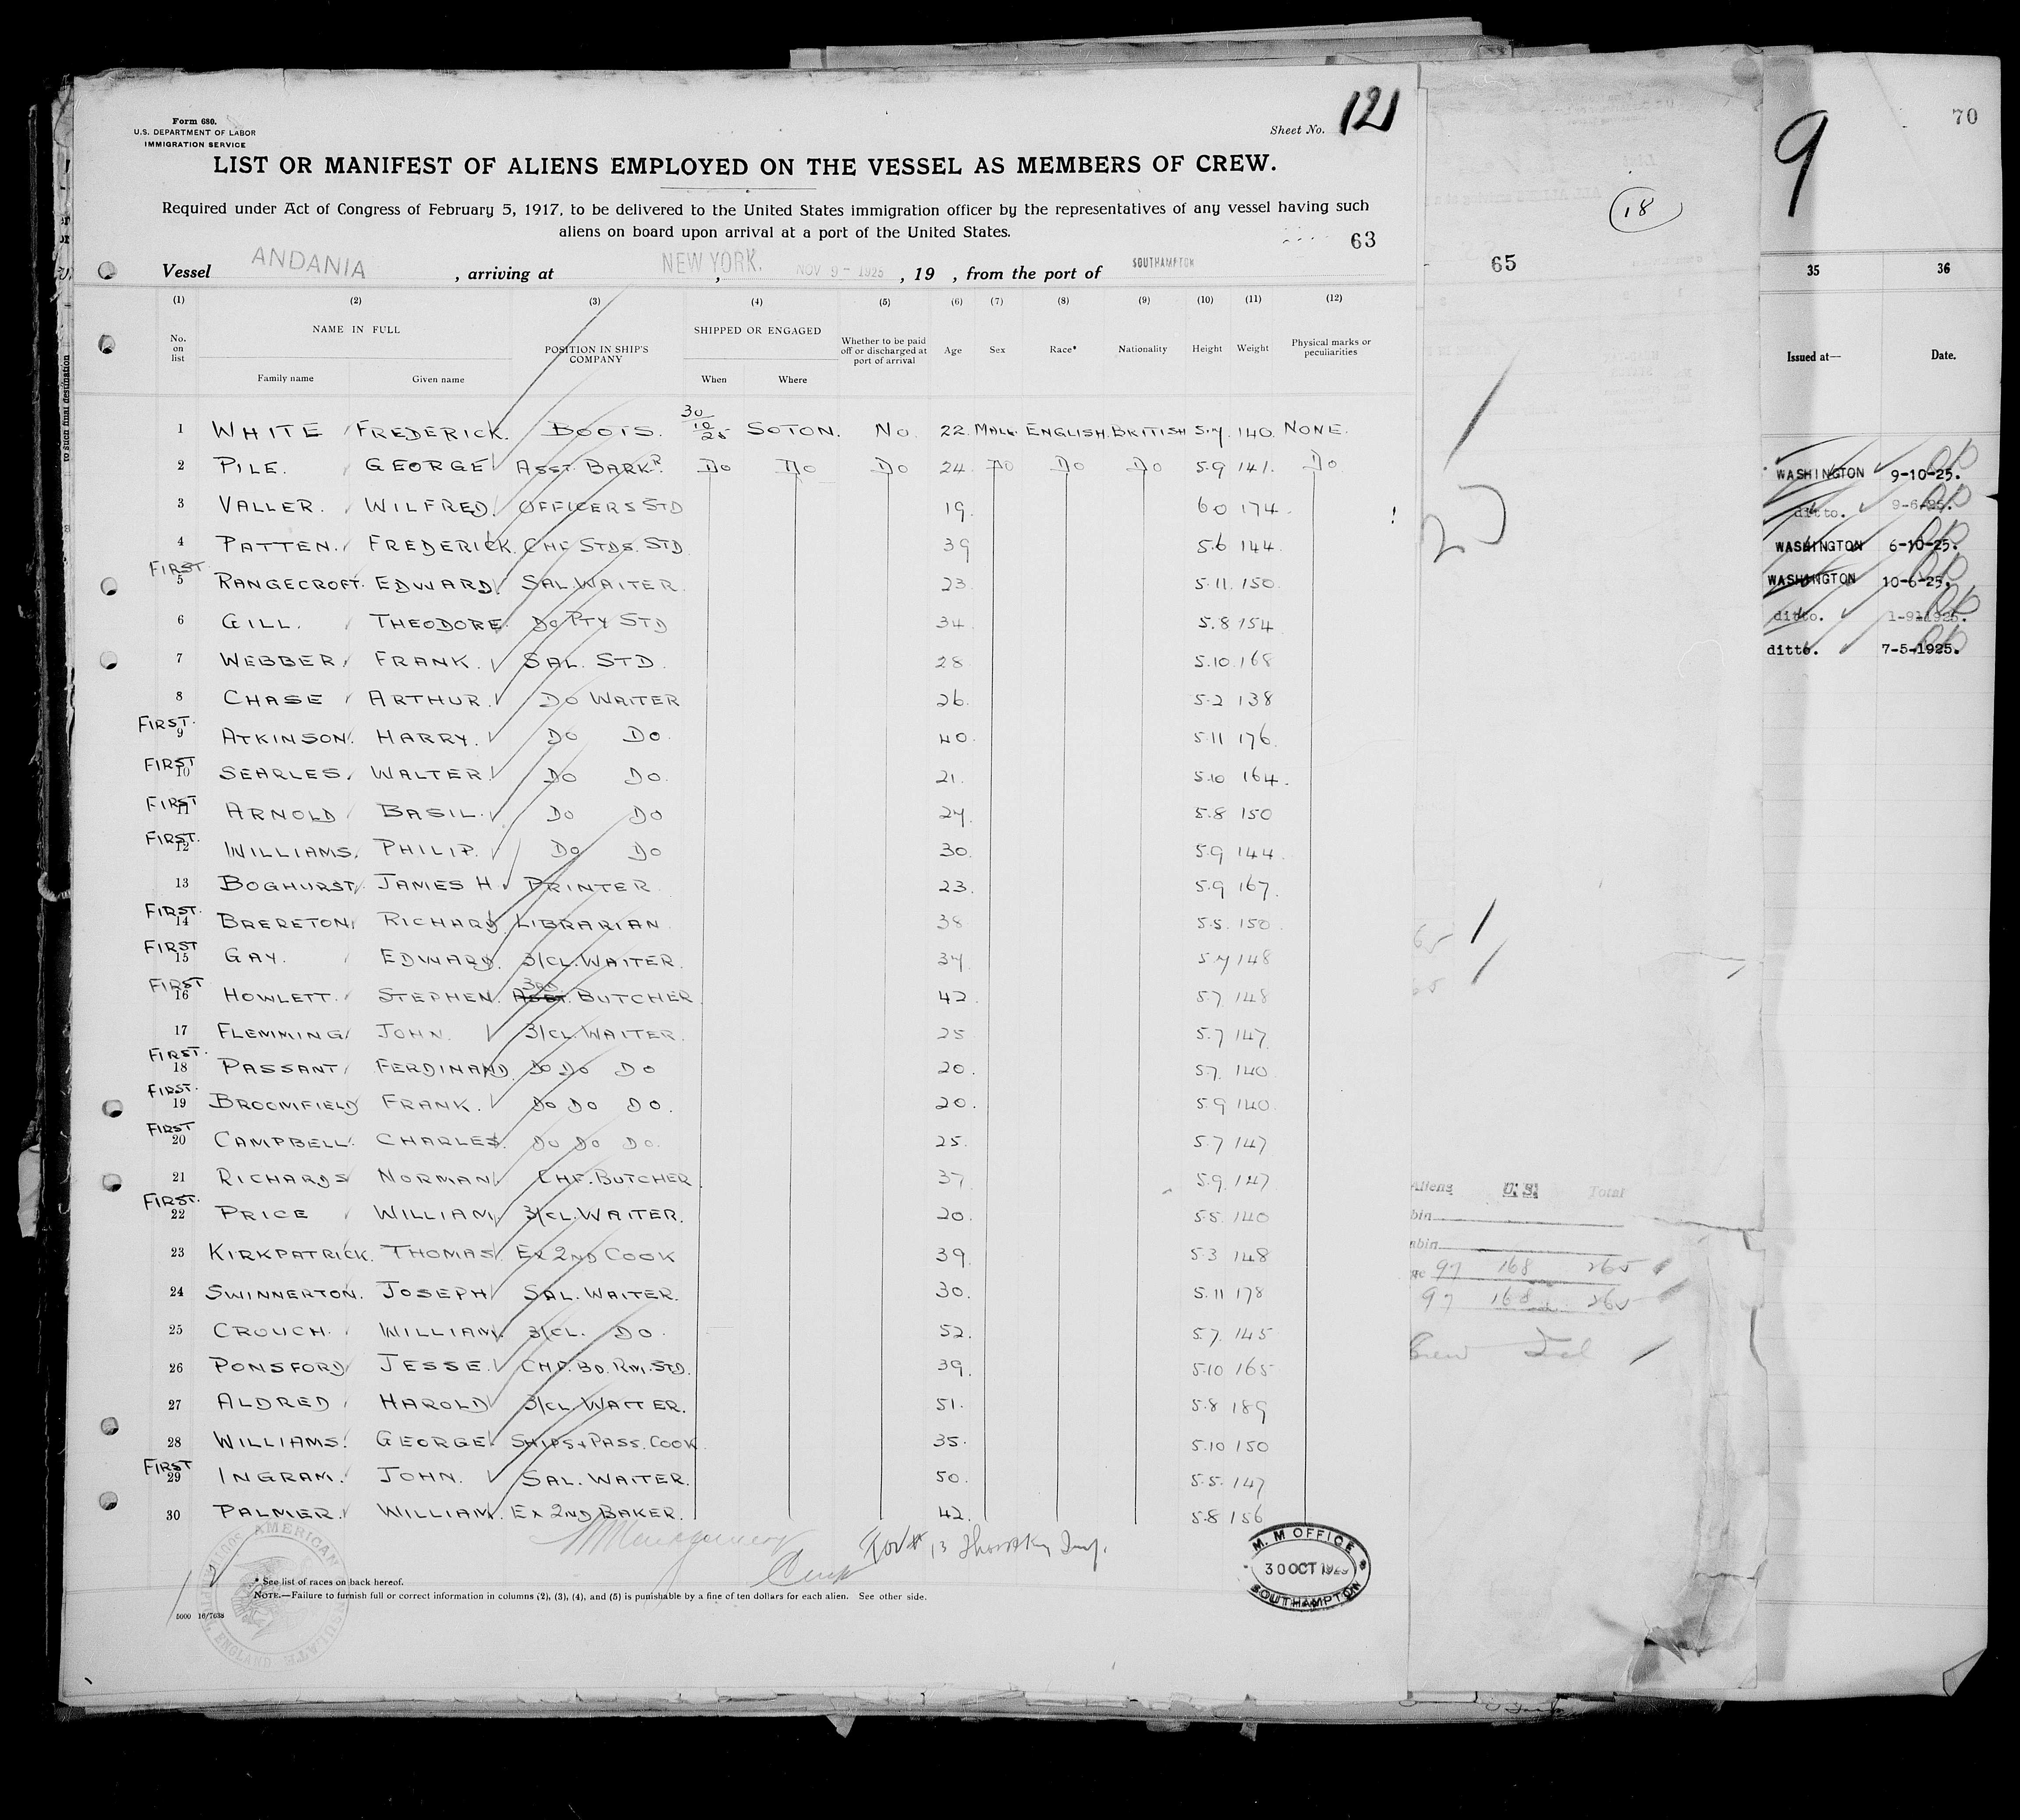 Form 680.
U.S. DEPARTMENT OF LABOR
IMMIGRATION SERVICE
Sheet No. 121
LIST OR MANIFEST OF ALIENS EMPLOYED ON THE VESSEL AS MEMBERS OF CREW.
Required under Act of Congress of February 5, 1917, to be delivered to the United States immigration officer by the representatives of any vessel having such
aliens on board upon arrival at a port of the United States.
63
Vessel ANDANIA , arriving at NEW YORK. , NOV 9 - 1925 , 19 , from the port of SOUTHAMPTON
(1) (2) (3) (4) (5) (6) (7) (8) (9) (10) (11) (12)
No. on list NAME IN FULL Family name Given name POSITION IN SHIP'S COMPANY SHIPPED OR ENGAGED When Where Whether to be paid off or discharged at port of arrival Age Sex Race* Nationality Height Weight Physical marks or peculiarities
1 WHITE FREDERICK. BOOTS. 30/10/25 SOTON. NO. 22. MALE. ENGLISH. BRITISH 5.7. 140. NONE.
2 PILE. GEORGE ASST. BARKR. DO DO DO 24. DO DO DO 5.9 141. DO
3 VALLER. WILFRED. OFFICERS STD 19. 6 0 174.
4 PATTEN. FREDERICK. CHF STDS. STD 39 5.6 144.
FIRST. 5 RANGECROFT. EDWARD. SAL. WAITER. 23. 5.11. 150.
6 GILL. THEODORE. DO PTY STD 34. 5.8 154
7 WEBBER. FRANK. SAL. STD. 28 5.10. 168
8 CHASE ARTHUR. DO WAITER 26. 5.2 138
FIRST. 9 ATKINSON. HARRY. DO DO. 40. 5.11 176.
FIRST 10 SEARLES. WALTER DO DO. 21. 5.10 164.
FIRST 11 ARNOLD BASIL. DO DO 24. 5.8 150
FIRST. 12 WILLIAMS. PHILIP. DO DO 30. 5.9 144.
13 BOGHURST JAMES H. PRINTER. 23. 5.9 167.
FIRST. 14 BRERETON RICHARD LIBRARIAN. 38 5.5. 150.
FIRST 15 GAY. EDWARD. 3/CL. WAITER. 34. 5.7 148
FIRST 16 HOWLETT. STEPHEN. 3RD ASST. BUTCHER. 42. 5.7. 148
17 FLEMMING JOHN. 3/CL. WAITER. 25 5.7 147
FIRST. 18 PASSANT FERDINAND. DO DO DO 20. 5.7. 140
FIRST. 19 BROOMFIELD FRANK. DO DO DO. 20. 5.9 140.
FIRST 20 CAMPBELL. CHARLES. DO DO DO. 25. 5.7 147
21 RICHARDS NORMAN CHF. BUTCHER. 37 5.9. 147
FIRST. 22 PRICE WILLIAM 3/CL. WAITER. 20. 5.5. 140
23 KIRKPATRICK. THOMAS EX 2ND COOK 39. 5.3 148
24 SWINNERTON. JOSEPH SAL. WAITER. 30. 5.11 178
25 CROUCH. WILLIAM. 3/CL. DO. 52. 5.7. 145
26 PONSFORD JESSE. CHF. BD. RM. STD. 39. 5.10 165
27 ALDRED HAROLD 3/CL. WAITER. 51. 5.8 189
28 WILLIAMS. GEORGE. SHIPS & PASS. COOK 35. 5.10 150
FIRST 29 INGRAM. JOHN. SAL. WAITER. 50. 5.5. 147
30 PALMER. WILLIAM. EX 2ND BAKER. 42. 5.8 156
M. M OFFICE
30 OCT 1925
SOUTHAMPTON
* See list of races on back hereof.
NOTE.—Failure to furnish full or correct information in columns (2), (3), (4), and (5) is punishable by a fine of ten dollars for each alien. See other side.
5000 16/7638
AMERICAN
ENGLAND
18
65
Aliens U.S. Total
97 168 265
97 168 265
9
70
35 36
Issued at— Date.
WASHINGTON 9-10-25.
ditto. 9-6-25.
WASHINGTON 6-10-25.
WASHINGTON 10-6-25.
ditto.
ditto. 7-5-1925.
to such final destination